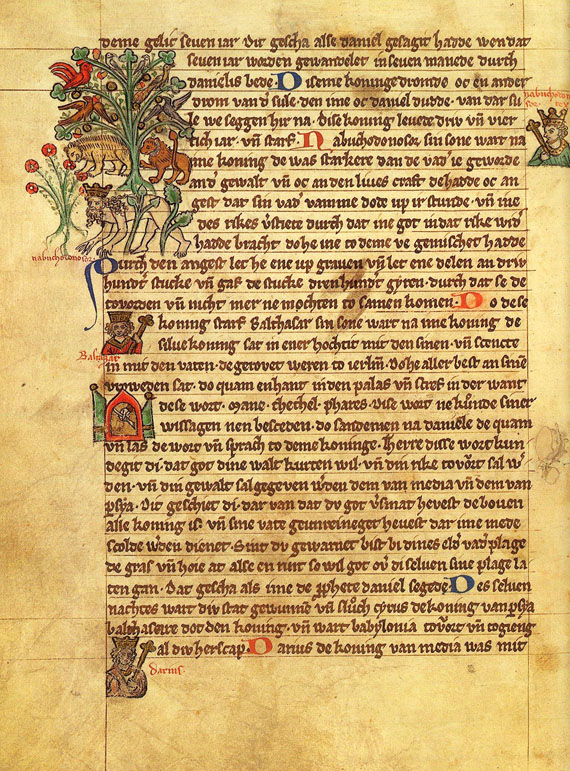 deme gelic seven iar. Dit gescha alse daniel gesagit hadde wen dat
seven iar worden gewandelet in seven manede durch
danielis bede. Diseme koninge dromde oc en ander
drom van der sule. den ime oc daniel dudde. van dar su
le we seggen hir na. Dise koning levete driv vn vier
tich iar. vn starf. Nabuchodonosor sin sone wart na
nabuchodono
sor. rex
ime koning de was starkere dan de vad ie geworde
an gewalt vn oc an den lives craft. de hadde oc an
gest dat sin vad van me dode up ir stunde. vn ime
des rikes durch dat ime got in dat rike wid
hadde bracht do he ene to deme ve gemischet hadde
nabuchodonosor.
Durch den angest let he ene up graven vn let ene delen an driv
hundt stucke vn gaf de stucke dren hundt giren. durch dat se de
to vorden vn nicht mer ne mochten to samen komen. Do dese
koning starf Balthasar sin sone wart na ime koning de
selve koning sat in ener hochtit mit den sinen. vn scencte
Baltasar
in mit den vaten. de gerovet weren to. Do he aller best an sine
vroweden sat. do quam en hant in den palas vn scref in der want
dese wort. Mane. thechel. phares. Dise wort ne kunde siner
wissagen nen besceden. do sande men na daniele. de quam
vn las de wort vn sprach to deme koninge. Herre disse wort kun
deget di. dat got dine walt kurten wil. vn din rike sal w
den. vn din gewalt sal gegeven wden dem van media vn dem van
psya. Dit geschiet di. dar van dat dv got hevest de boven
alle koning is. vn sine vate geunreineget hevest dar ime mede
scolde wden dienet. Sint dv gewarnet bist bi dines plage
de gras vn hoie at alse en so wil got di selven sine plage la
ten gan. Dat gescha als ime de phete daniel segede. Des selven
nachtes wart div stat gewunne vn cyrus de koning van psya
balthasare dot den koning. vn wart babylonia vn togieng
al div herscap. Darius de koning van media was mit
darius.